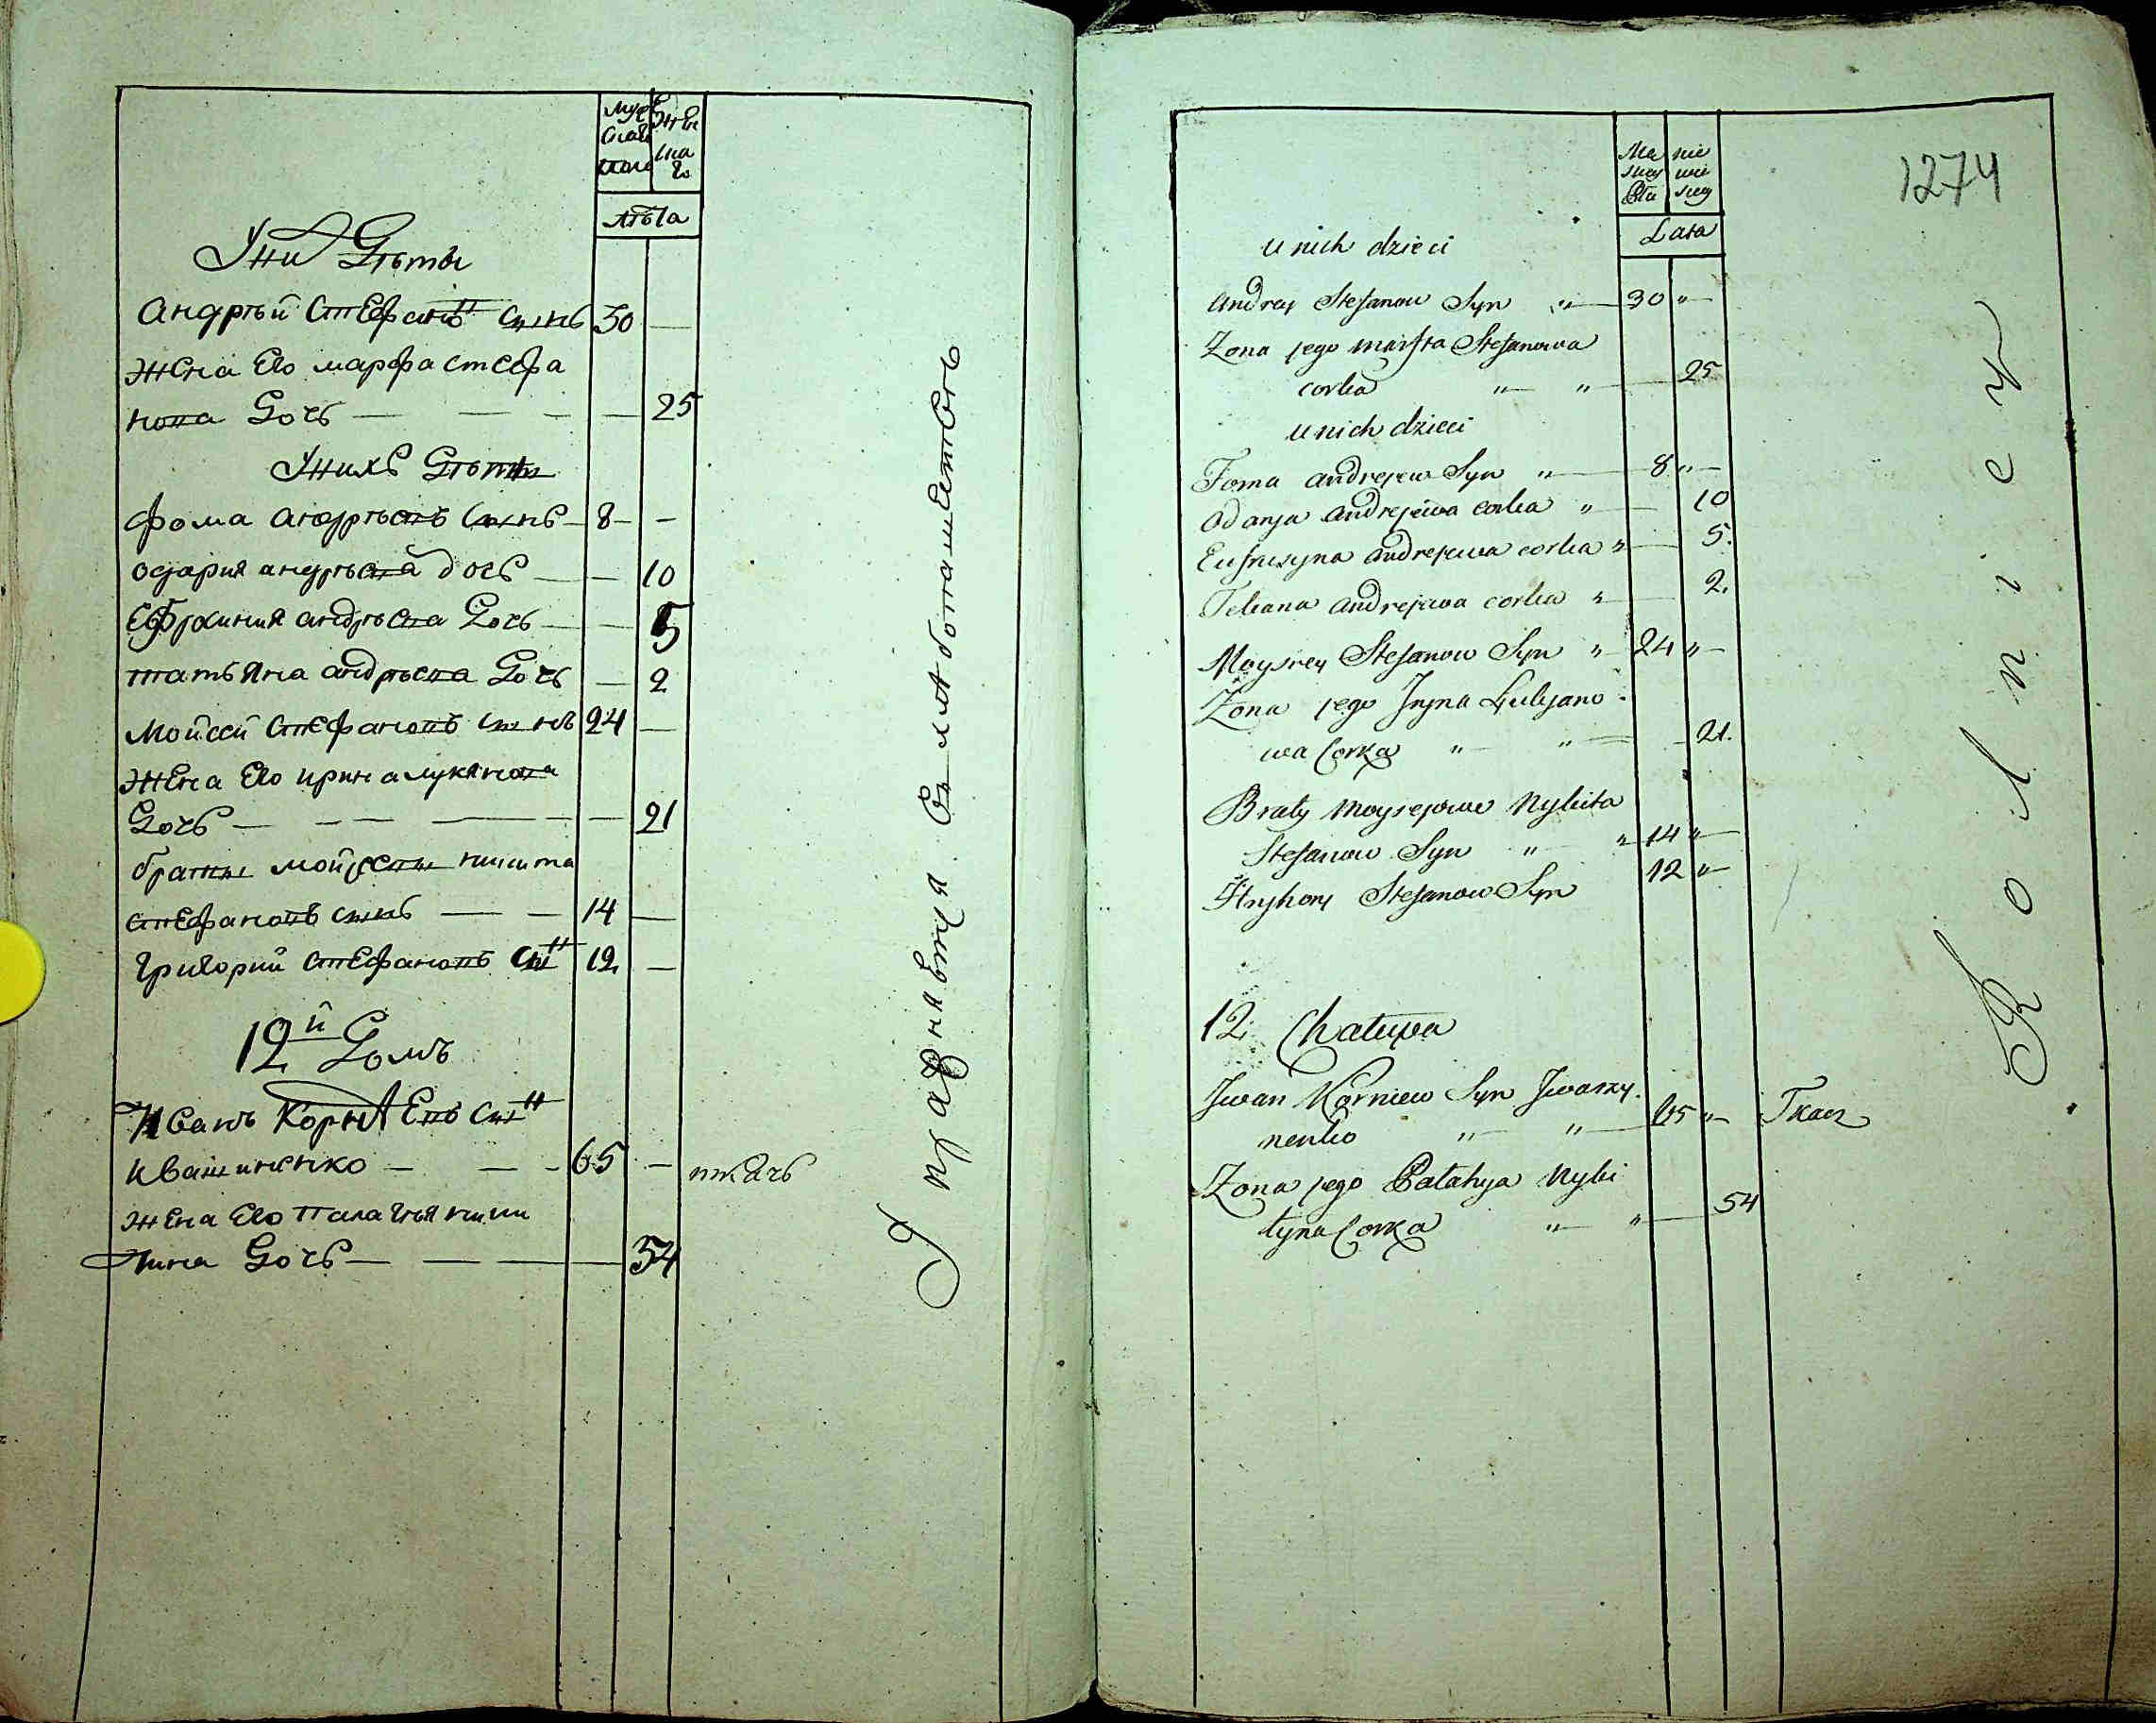 Мужеска пола
Женска го
лѣта
У ни Дѣты
Андрѣй Стефановъ сынъ 30 —
жена Его марфа стефа
нова Дочь — — — 25
У нихъ Дѣты
Фома андрѣевъ сынъ — 8 — —
одария андрѣева дочь — — 10
Ефросиния андрѣева Дочь — — 5
татьяна андрѣева Дочь — 2
Мойсей Стефановъ сынъ 24 —
жена Его ирина лукянова
Дочь — — — — 21
браты мойсеевы никита
стефановъ сынъ — — 14 —
григорий стефановъ сынъ 12 —
12й Домъ
Иванъ Корнѣевъ сынъ
ивашиненко — — — 65 — ткачь
жена Его палагѣя ники
тина Дочь — — — — 54
Упражнаются в хлѣбопашествѣ
Mę skey Płci
nie wie skey
Lata
1274
u nich dzieci
Andrey Stefanow Syn „ — 30 „ —
Zona jego marfta Stefanowa
corka „ — „ — 25
u nich dzieci
Foma andrejew Syn „ — 8 „ —
Odarya andrejewa corka „ — 10
Eufrozyna andrejewa corka „ — 5.
Tetiana andrejewa corka „ — 2.
Moysiey Stefanow Syn „ 24 „ —
Zona jego Iryna Łukjano
wa Corka „ — „ — 21.
Braty moysejowe Nykita
Stefanow Syn „ „ 14 „ —
Hryhory Stefanow Syn 12 „ —
12 Chałupa
Iwan Korniew Syn Iwaszy
nenko „ — „ — 65 „ — Tkacz
Zona jego Palahya Nyki
tyna Corka „ — „ — 54
Rolnicy